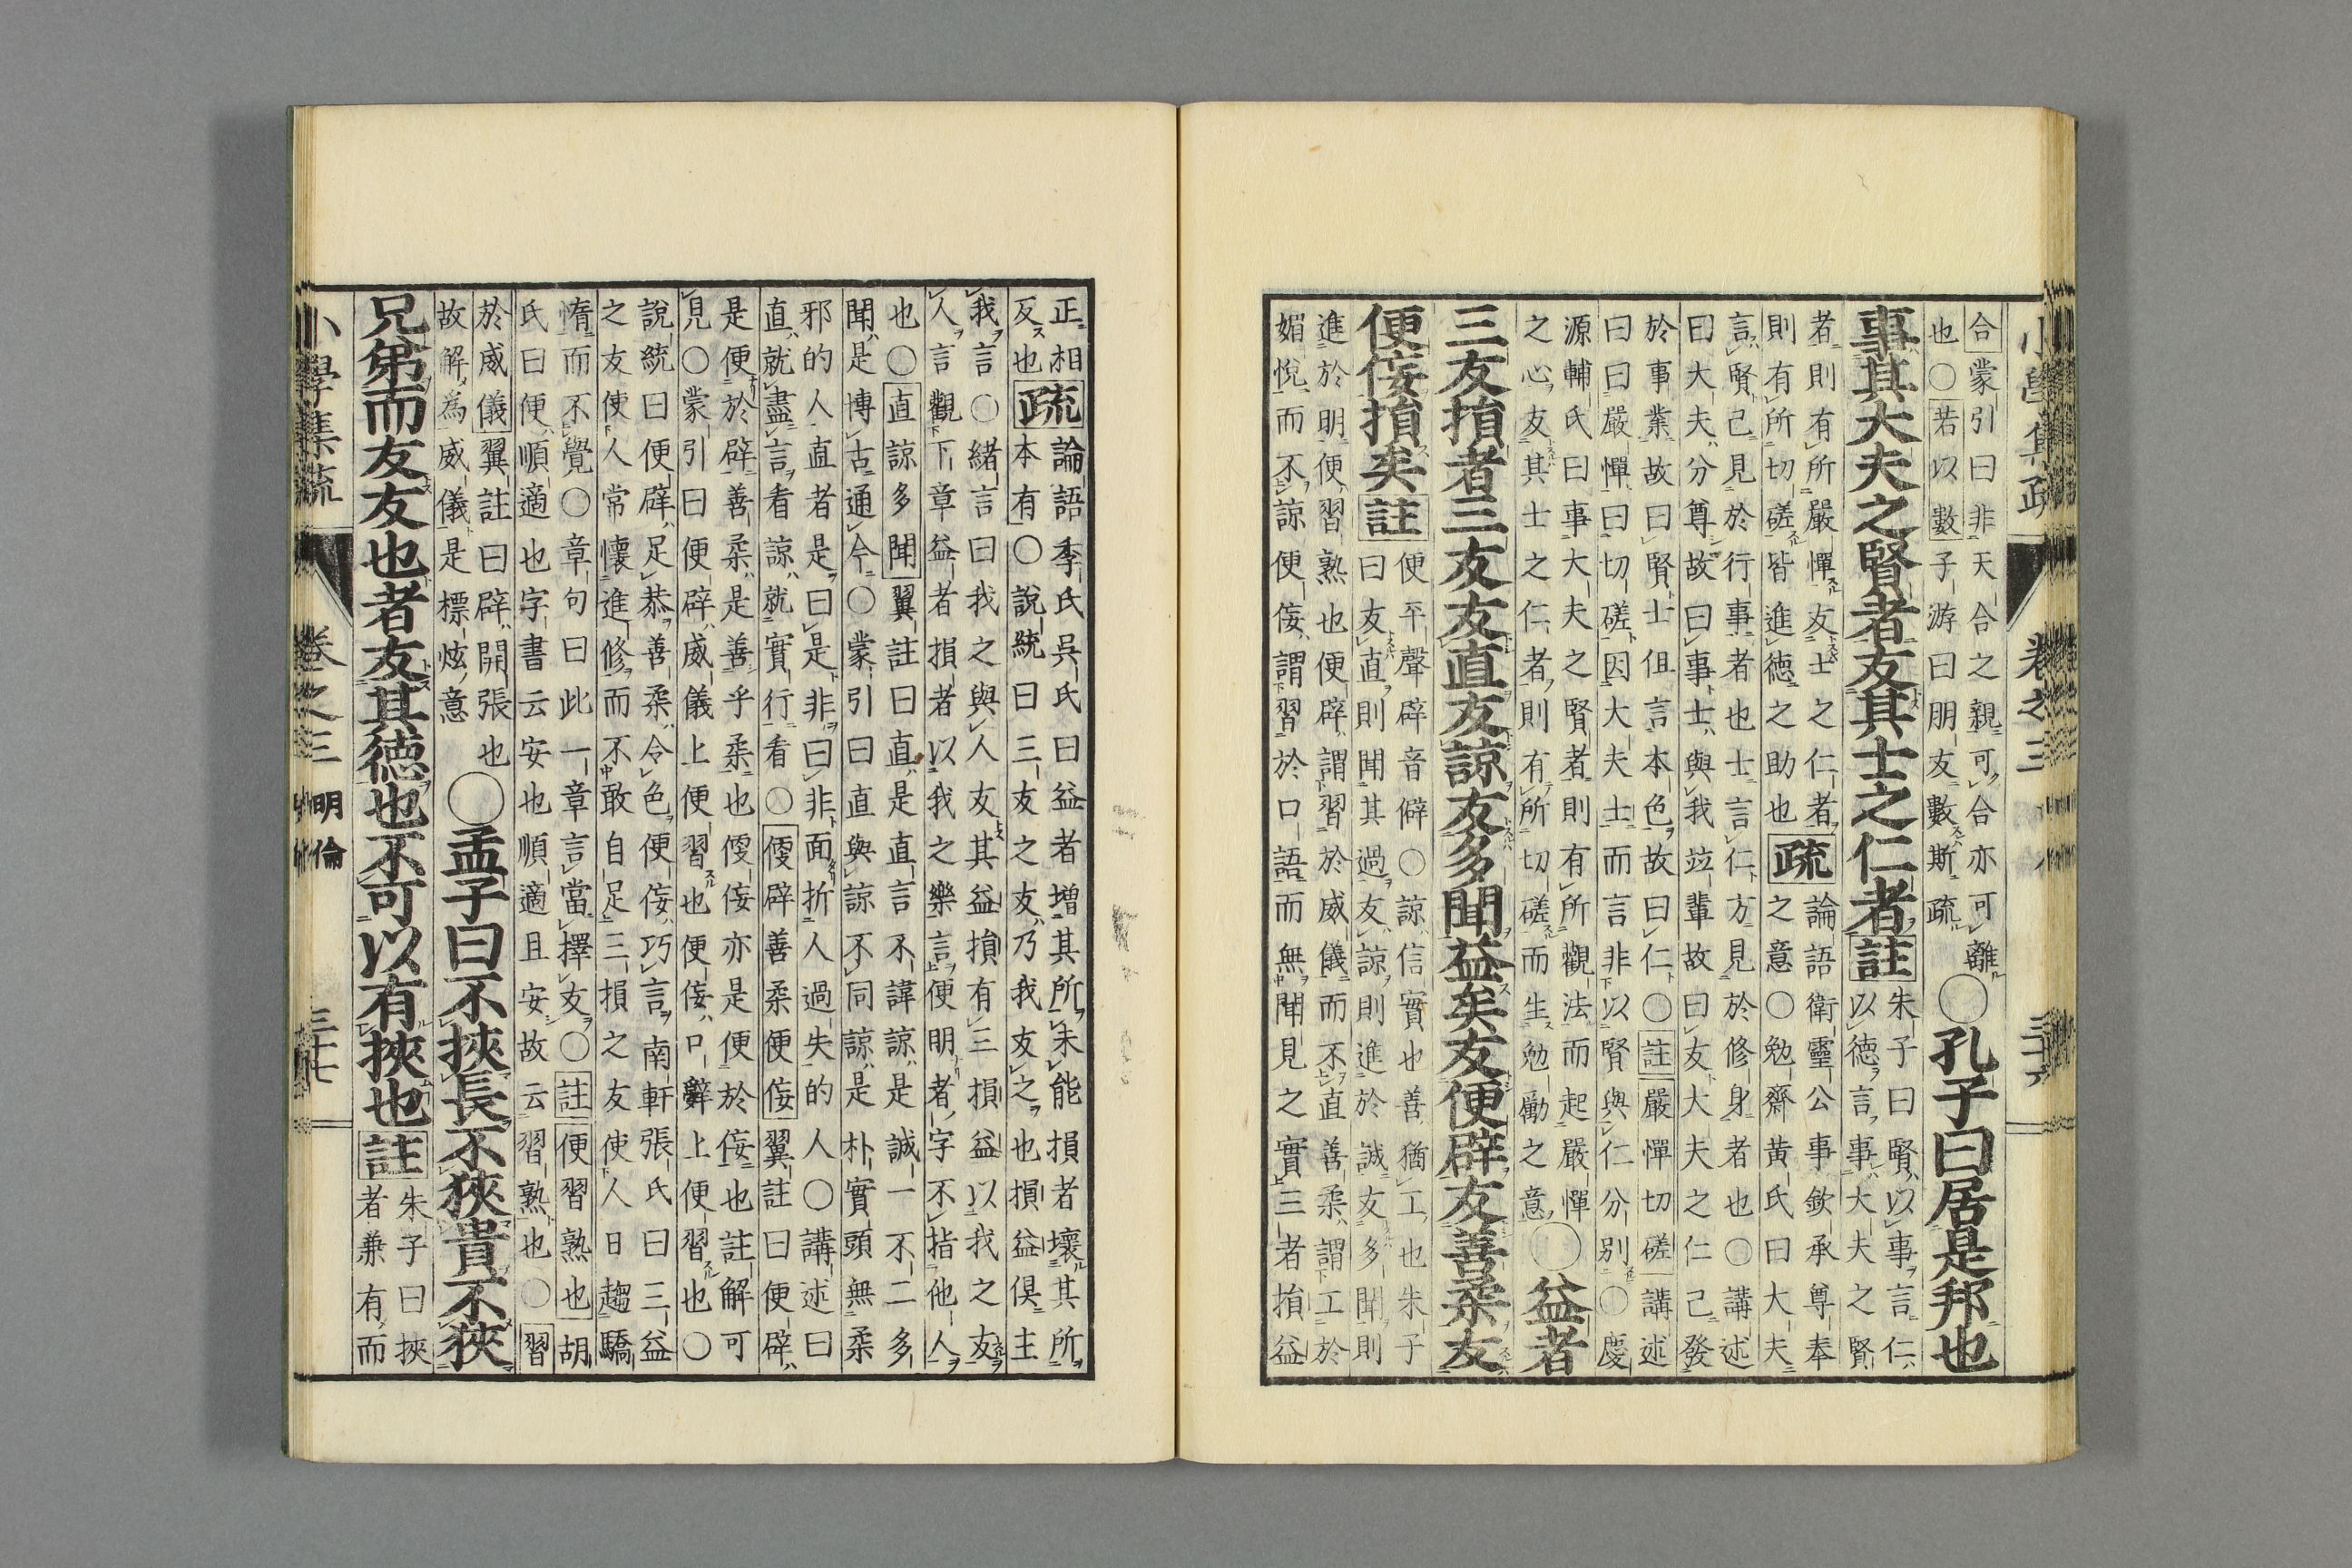 小學集疏 卷之三
合蒙引曰非天合之親可合亦可離
也○若以數子游曰朋友數斯疏
○孔子曰居是邦也
事其大夫之賢者友其士之仁者註
朱子曰賢以事言仁
以德言事大夫之賢
者則有所嚴憚友士之仁者
則有所切磋皆進德之助也
疏
論語衛靈公事欽承尊奉
之意○勉齋黃氏曰大夫
言賢己見於行事者也士言仁方見於修身者也○講述
曰大夫分尊故曰事士與我竝輩故曰友大夫之仁己發
於事業故曰賢士但言本色故曰仁○註嚴憚切磋講述
曰曰嚴憚曰切磋因大夫士而言非以賢與仁分別○慶
源輔氏曰事大夫之賢者則有所觀法而起嚴憚
之心友其士之仁者則有所切磋而生勉勵之意
○益者
三友損者三友友直友諒友多聞益矣友便辟友善柔友
便佞損矣註
便平聲辟音僻○諒信實也善猶工也朱子
曰友直則聞其過友諒則進於誠友多聞則
進於明便習熟也便辟謂習於威儀而不直善柔謂工於
媚悅而不諒便佞謂習於口語而無聞見之實三者損益
正相
反也
疏
論語季氏吳氏曰益者增其所未能損者壞其所
本有○說統曰三友之友乃我友之也損益俱主
我言○緒言曰我之與人友其益損有三損益以我之友
人言觀下章益者損者以我之樂言便明者字不指他人
也○直諒多聞翼註曰直是直言不諱諒是誠一不二多
聞是博古通今○蒙引曰直與諒不同諒是朴實頭無柔
邪的人直者是曰是非曰非面折人過失的人○講述曰
直就盡言看諒就實行看○便辟善柔便佞翼註曰便辟
是便於辟善柔是善乎柔也便佞亦是便於佞也註解可
見○蒙引曰便辟威儀上便習也便佞口辭上便習也○
說統曰便辟足恭善柔令色便佞巧言南軒張氏曰三益
之友使人常懷進修而不敢自足三損之友使人日趨驕
惰而不覺○章句曰此一章言當擇友○註便習熟也胡
氏曰便順適也字書云安也順適且安故云習熟也○習
於威儀翼註曰辟開張也
故解為威儀是標炫意
○孟子曰不挾長不狹貴不狹
兄弟而友友也者友其德也不可以有挾也註
朱子曰挾
者兼有而
小學集疏 卷之三 明倫 三十七